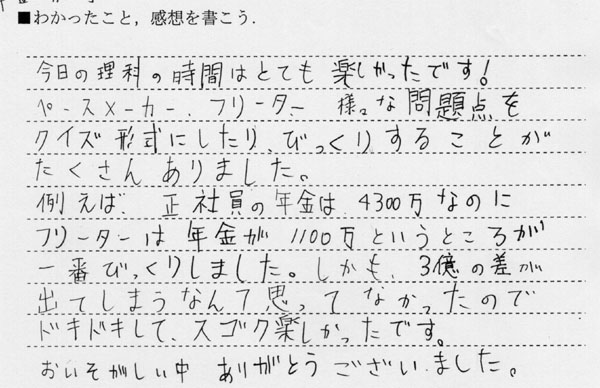 ■わかったこと，感想を書こう．
今日の理科の時間はとても楽しかったです！
ペースメーカー、フリーター 様々な問題点を
クイズ形式にしたり、びっくりすることが
たくさんありました。
例えば、正社員の年金は、4300万なのに
フリーターは年金が1100万というところが
一番びっくりしました。しかも、3億の差が
出てしまうなんて思ってなかったので
ドキドキして、スゴク楽しかったです。
おいそがしい中 ありがとうございました。